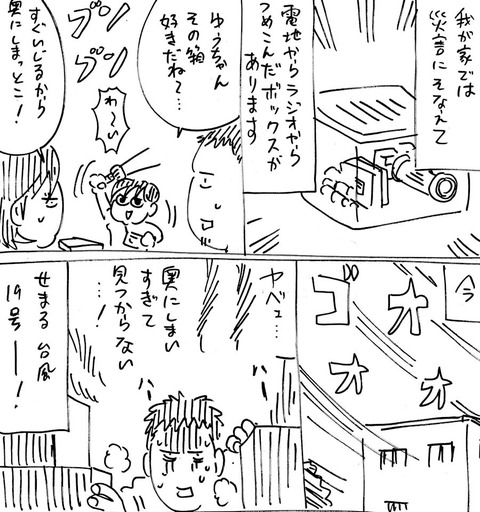 我が家では
災害にそなえて
電池からラジオやら
つめこんだボックスが
あります
ゆうちゃん
その箱
好きだね〜…
わ〜い
ブン
ブン
すぐいじるから
奥にしまっとこ！
今
ゴオ
オオ
ヤベェ…
奥にしまい
すぎて
見つからない
…！
ハー
ハー
せまる台風
19号ー！